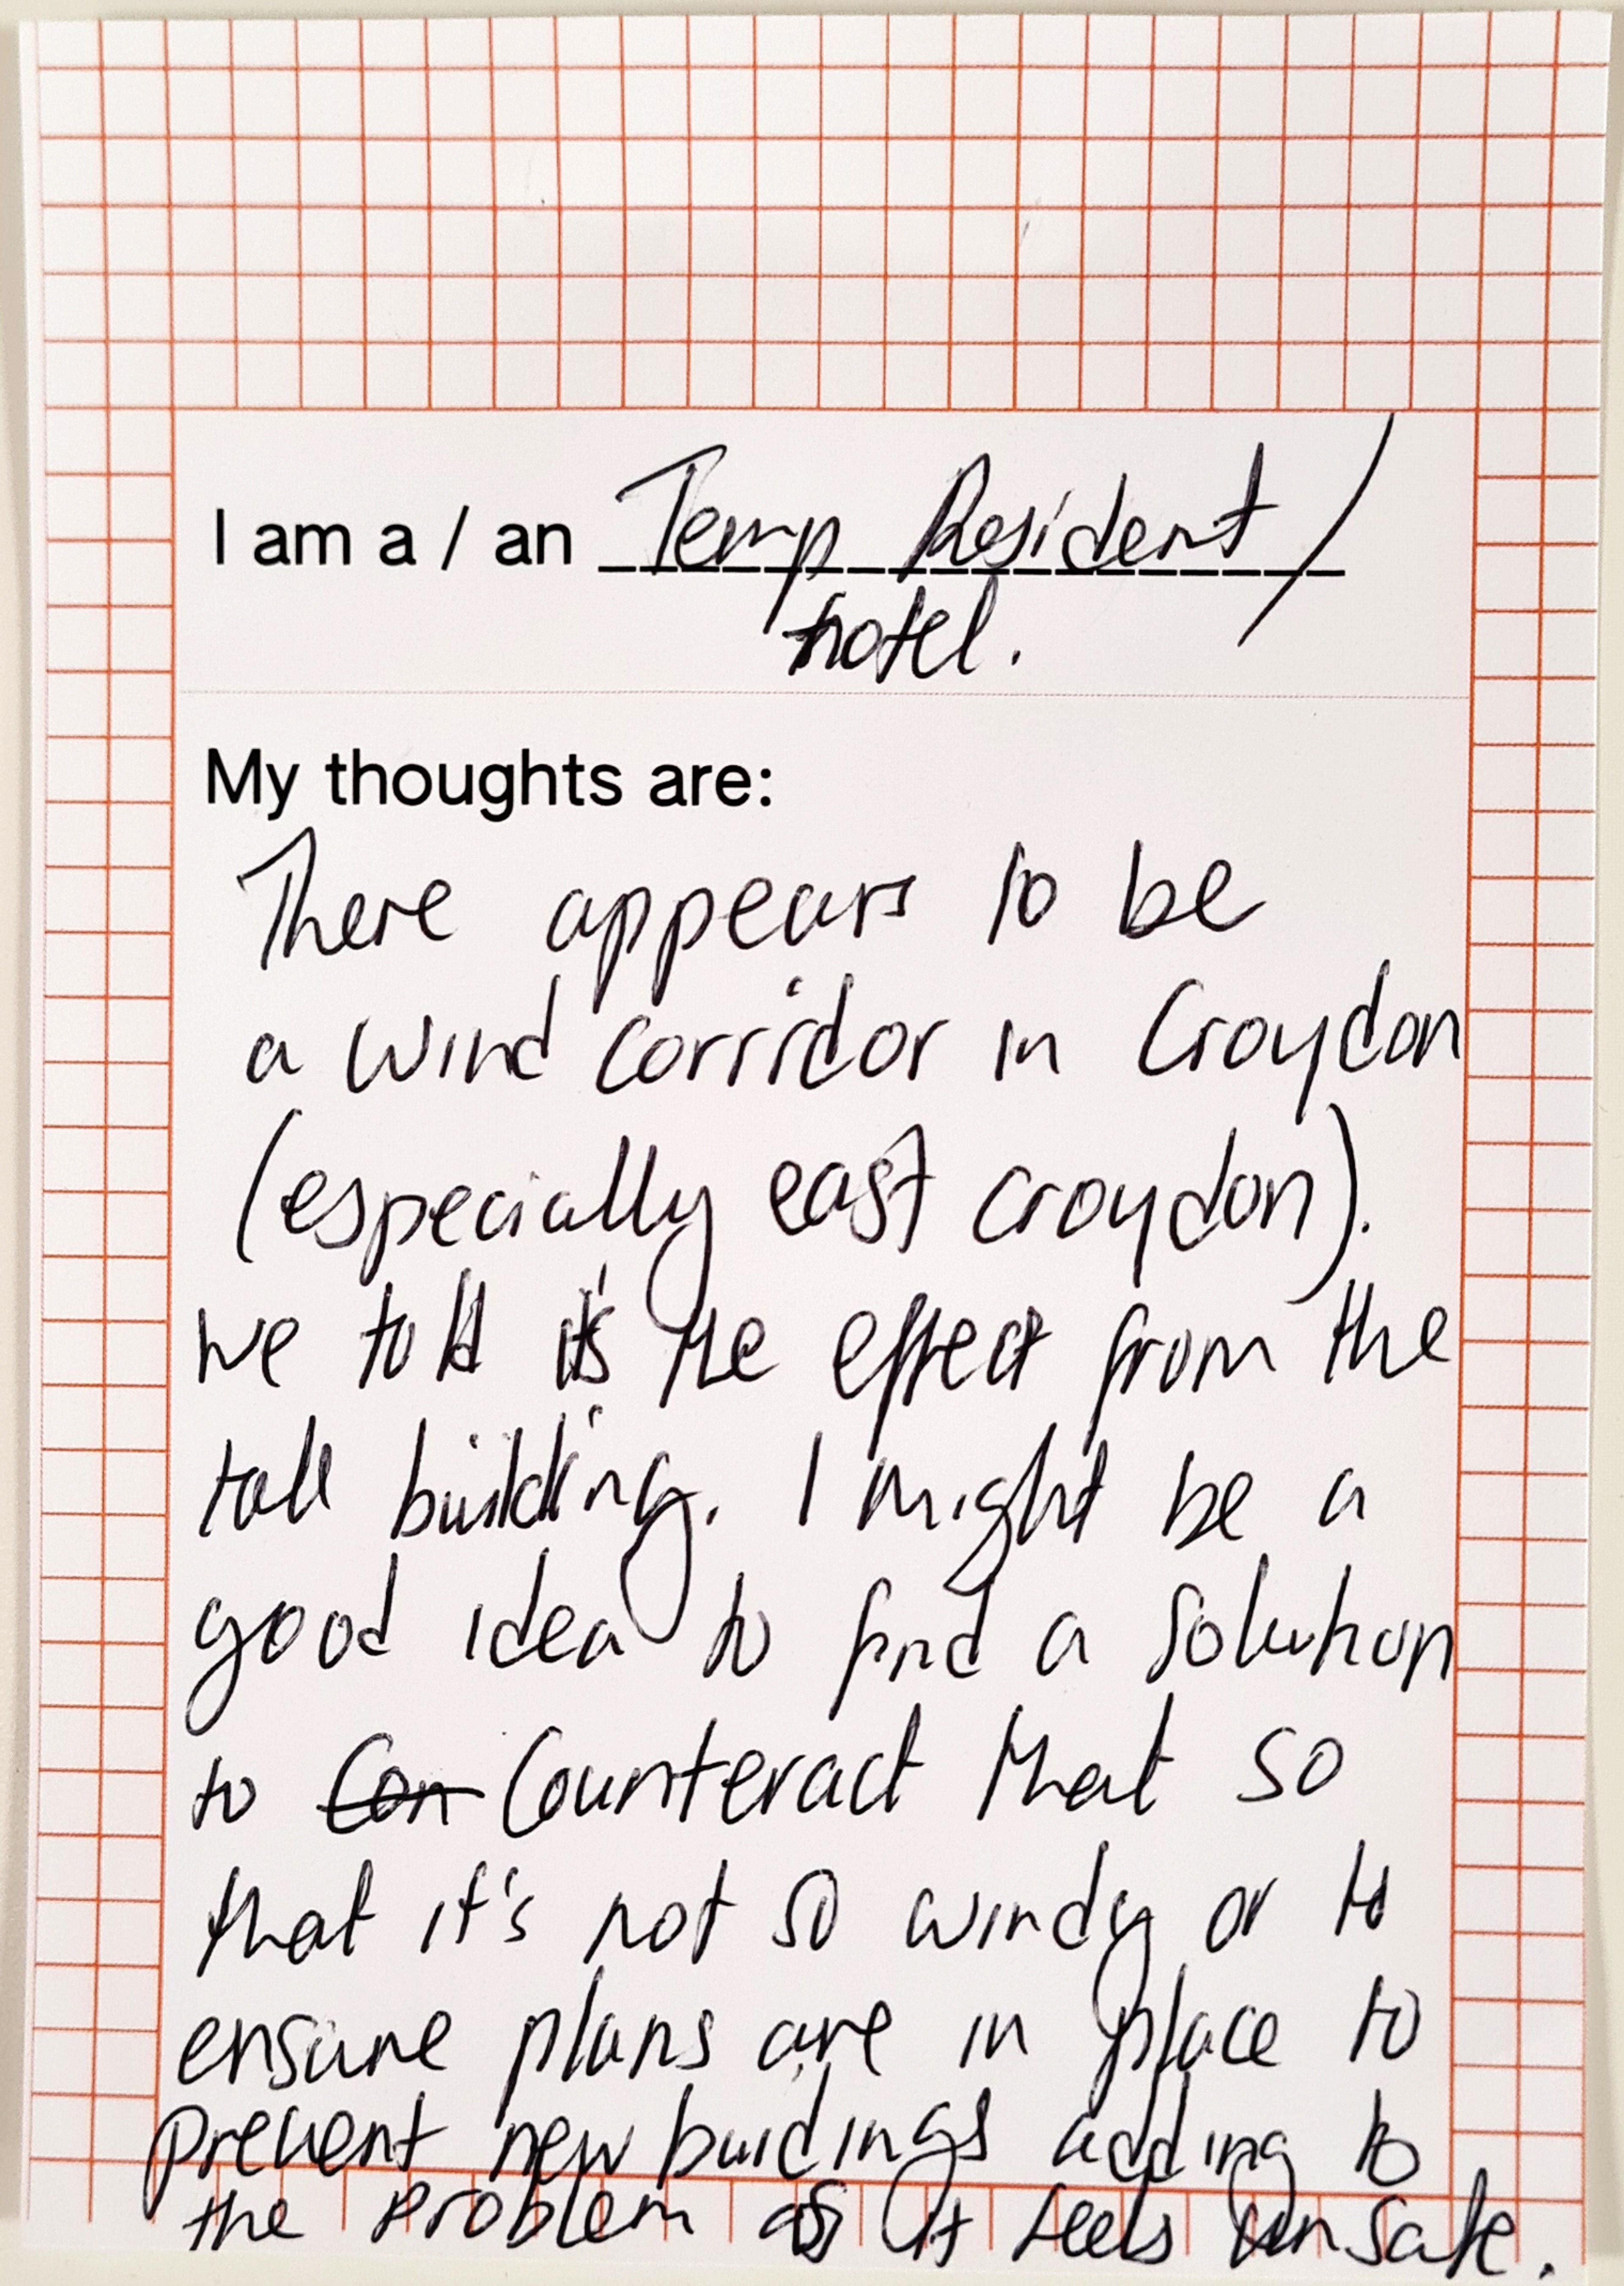 I am a / an Temp Resident /
hotel.
My thoughts are:
There appears to be
a wind corridor in Croydon
(especially east croydon).
we told it's the effect from the
tall building. I might be a
good idea to find a solution
to Con Counteract that so
that it's not so windy or to
ensure plans are in place to
prevent new buidings adding to
the problem as it feels unsafe.